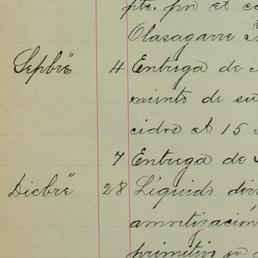 pte. pr el co
Olasagarre
Sepbre 4 Entrega de
miento de su
cidro el 15
7 Entrega de
Dicbre 28 Líquido div
amortización
primitivo en